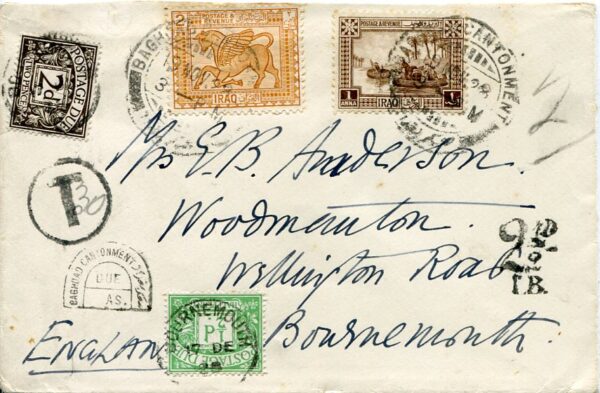 POSTAGE DUE
2d
TWO PENCE
2
POSTAGE & REVENUE
IRAQ
BAGHDAD
NOV
POSTAGE & REVENUE
1 ANNA IRAQ 1
CANTONMENT
T
30
BAGHDAD CANTONMENT
DUE
AS.
Mrs E. B. Anderson.
Woodmanton.
Wellington Road
Bournemouth.
ENGLAND
2½D
I.B.
BOURNEMOUTH
DE
POSTAGE DUE